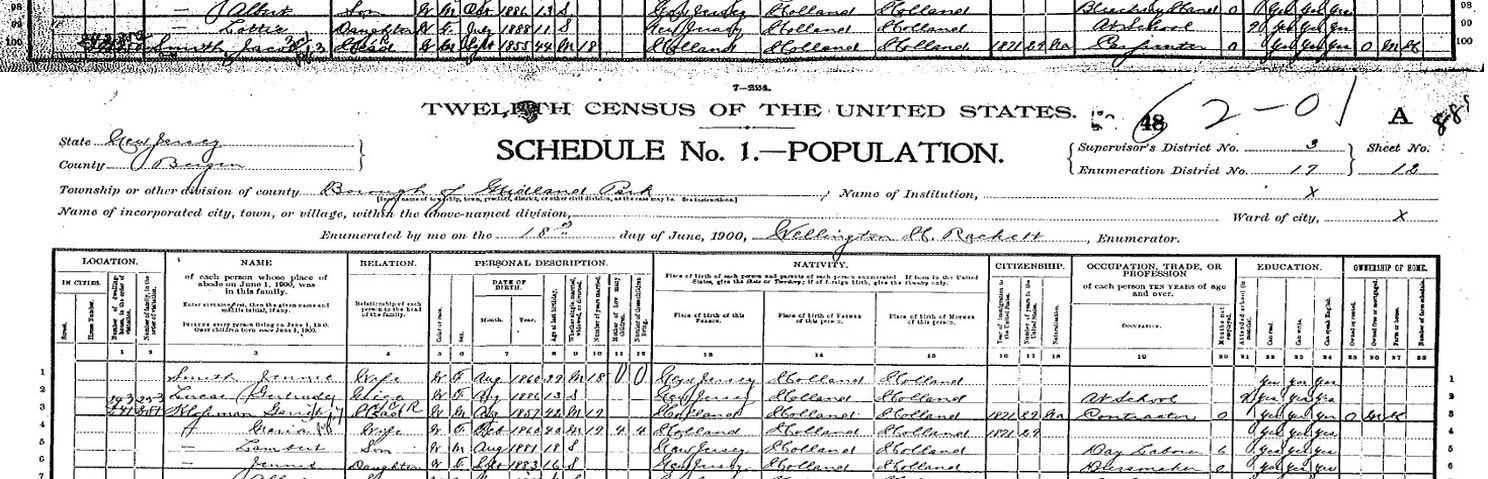 98 — Albert Son W M Oct 1886 13 S New Jersey Holland Holland 0 yes yes yes 98
99 — Lottie Daughter W F July 1888 11 S New Jersey Holland Holland At School 9 yes yes yes 99
100 Smith Jacob Head W M Sept 1855 44 M 18 Holland Holland Holland 1871 29 Na Carpenter 0 yes yes yes O M H 100
7—224.
TWELFTH CENSUS OF THE UNITED STATES. 48 62-01 A
State New Jersey
County Bergen
SCHEDULE No. 1.—POPULATION.
Supervisor's District No. 3 Sheet No.
Enumeration District No. 17 12
Township or other division of county Borough of Midland Park ; Name of Institution, X
[Insert name of township, town, precinct, district, or other civil division, as the case may be. See instructions.]
Name of incorporated city, town, or village, within the above-named division, Ward of city, X
Enumerated by me on the 18th day of June, 1900, Wellington H. Rackett, Enumerator.
LOCATION. NAME RELATION. PERSONAL DESCRIPTION. NATIVITY. CITIZENSHIP. OCCUPATION, TRADE, OR PROFESSION EDUCATION. OWNERSHIP OF HOME.
IN CITIES. of each person whose place of abode on June 1, 1900, was in this family. Relationship of each person to the head of the family. DATE OF BIRTH. Place of birth of each person and parents of each person enumerated. If born in the United States, give the State or Territory; if of foreign birth, give the Country only. of each person TEN YEARS of age and over.
Enter surname first, then the given name and middle initial, if any.
INCLUDE every person living on June 1, 1900. OMIT children born since June 1, 1900.
Street. House Number. Number of dwelling-house, in the order of visitation. Number of family, in the order of visitation. Color or race. Sex. Month. Year. Age at last birthday. Whether single, married, widowed, or divorced. Number of years married. Mother of how many children. Number of these children living. Place of birth of this PERSON. Place of birth of FATHER of this person. Place of birth of MOTHER of this person. Year of immigration to the United States. Number of years in the United States. Naturalization. OCCUPATION. Months not employed. Attended school (in months). Can read. Can write. Can speak English. Owned or rented. Owned free or mortgaged. Farm or house. Number of farm schedule.
1 2 3 4 5 6 7 8 9 10 11 12 13 14 15 16 17 18 19 20 21 22 23 24 25 26 27 28
1 Smith Jennie Wife W F Aug 1860 39 M 18 0 0 New Jersey Holland Holland yes yes yes 1
2 Lucas Gertrude Niece W F Aug 1886 13 S New Jersey Holland Holland At School 9 yes yes yes 2
3 241 281 Klopman Head W M Aug 1857 42 M 19 Holland Holland Holland 1871 29 Na Contractor 0 yes yes yes O M H 3
4 Maria Wife W F Oct 1860 40 M 19 4 4 Holland Holland Holland 1871 29 yes yes yes 4
5 — Lambert Son W M Aug 1881 18 S New Jersey Holland Holland Day Labor 6 yes yes yes 5
6 — Jennie Daughter W F Sept 1883 16 S New Jersey Holland Holland Dressmaker 0 yes yes yes 6
7